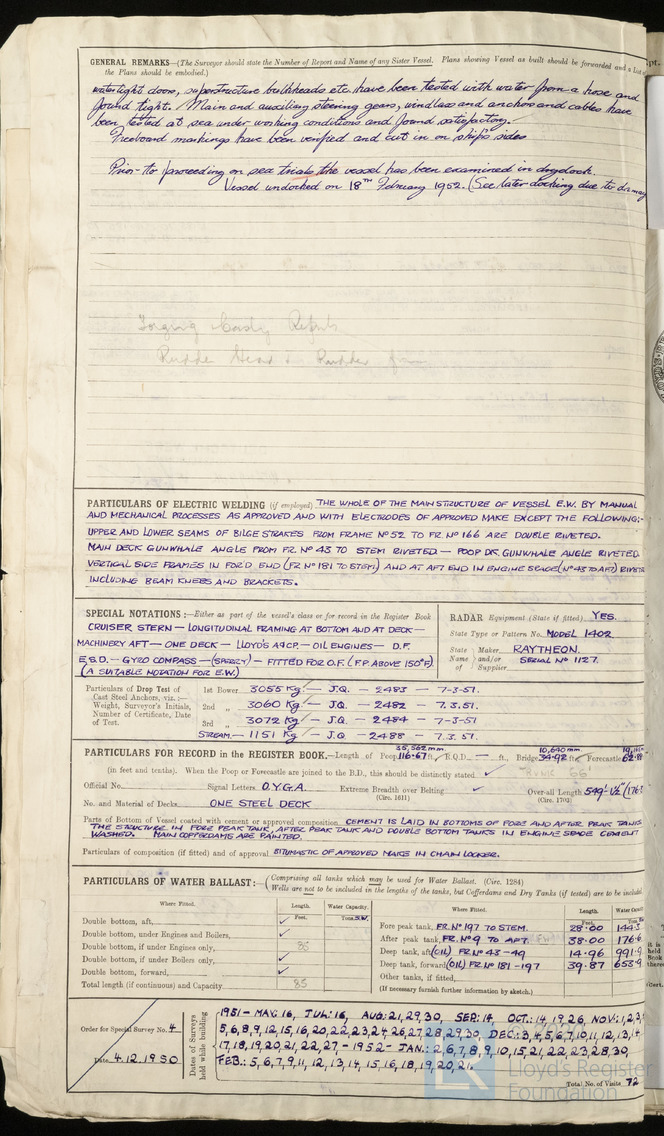 GENERAL REMARKS—(The Surveyor should state the Number of Report and Name of any Sister Vessel. Plans showing Vessel as built should be forwarded and a List of
the Plans should be embodied.)
watertight doors, superstructure bulkheads etc. have been tested with water from a hose and
found tight. Main and auxiliary steering gears, windlass and anchors and cables have
been tested at sea under working conditions and found satisfactory.
Freeboard markings have been verified and cut in on ship's sides
Prior to proceeding on sea trials the vessel has been examined in drydock.
Vessel undocked on 18TH February 1952. (See later docking due to damage
Forging Reports
Rudder Head & Rudder
PARTICULARS OF ELECTRIC WELDING (if employed) THE WHOLE OF THE MAIN STRUCTURE OF VESSEL E.W. BY MANUAL
AND MECHANICAL PROCESSES AS APPROVED AND WITH ELECTRODES OF APPROVED MAKE EXCEPT THE FOLLOWING:-
UPPER AND LOWER SEAMS OF BILGE STRAKES FROM FRAME No 52 TO FR. No 166 ARE DOUBLE RIVETED.
MAIN DECK GUNWHALE ANGLE FROM FR. No 43 TO STEM RIVETED — POOP DK. GUNWHALE ANGLE RIVETED.
VERTICAL SIDE FRAMES IN FOR'D END (FR. No 181 TO STEM) AND AT AFT END IN ENGINE SPACE (No 43 TO AFT) RIVETE
INCLUDING BEAM KNEES AND BRACKETS.
SPECIAL NOTATIONS:—Either as part of the vessel's class or for record in the Register Book
CRUISER STERN — LONGITUDINAL FRAMING AT BOTTOM AND AT DECK —
MACHINERY AFT — ONE DECK — LLOYD'S A&CP. — OIL ENGINES — D.F.
E.S.D. — GYRO COMPASS — (SPERRY) — FITTED FOR O.F. (F.P. ABOVE 150°F)
(A SUITABLE NOTATION FOR E.W.)
RADAR Equipment (State if fitted) YES.
State Type or Pattern No. MODEL 1402
State Name of Maker and/or Supplier RAYTHEON.
SERIAL No 1127.
Particulars of Drop Test of Cast Steel Anchors, viz.:— Weight, Surveyor's Initials, Number of Certificate, Date of Test.
1st Bower 3055 Kg — J.Q. — 2483 — 7-3-51.
2nd „ 3060 Kg — J.Q. — 2482 — 7.3.51.
3rd „ 3072 Kg — J.Q. — 2484 — 7-3-51
STREAM.— 1151 Kg — J.Q. — 2488 — 7.3.51.
35,562 mm. 10,640 mm
PARTICULARS FOR RECORD in the REGISTER BOOK.—Length of Poop 116.67 ft., R.Q.D. — ft., Bridge 34.92 ft., Forecastle 62.88
(in feet and tenths). When the Poop or Forecastle are joined to the B.D., this should be distinctly stated ✓
Official No. Signal Letters O.Y.G.A. Extreme Breadth over Belting ✓ Over-all Length 549'-1½"
(Circ. 1611) (Circ. 1703)
No. and Material of Decks ONE STEEL DECK
Parts of Bottom of Vessel coated with cement or approved composition. CEMENT IS LAID IN BOTTOMS OF FORE AND AFTER PEAK TANKS
THE STRUCTURE IN FORE PEAK TANK, AFTER PEAK TANK AND DOUBLE BOTTOM TANKS IN ENGINE SPACE CEMENT
WASHED. MAIN COFFERDAMS ARE PAINTED.
Particulars of composition (if fitted) and of approval BITUMASTIC OF APPROVED MAKE IN CHAIN LOCKER.
PARTICULARS OF WATER BALLAST:—(Comprising all tanks which may be used for Water Ballast. (Circ. 1284)
Wells are not to be included in the lengths of the tanks, but Cofferdams and Dry Tanks (if tested) are to be included
Where Fitted. Length. Water Capacity.
Feet. Tons S.W.
Double bottom, aft, ✓
Double bottom, under Engines and Boilers, ✓
Double bottom, if under Engines only, 85
Double bottom, if under Boilers only, ✓
Double bottom, forward, ✓
Total length (if continuous) and Capacity 85
Where Fitted. Length. Water Capacity
Feet. Tons
Fore peak tank, FR. No 197 TO STEM. 28.00 144.3
After peak tank, FR. No 9 TO AFT. 38.00 176.6
Deep tank, aft (OIL) FR. No 43-49 14.96 991.9
Deep tank, forward (OIL) FR. No 181-197 39.87 653.9
Other tanks, if fitted,
(If necessary furnish further information by sketch.)
Order for Special Survey No. 4
Date 4.12.1950
Dates of Surveys held while building
1951 - MAY: 16, JUL: 16, AUG: 21, 29, 30, SEP: 14, OCT.: 14, 19, 26, NOV: 1, 2, 3,
5, 6, 8, 9, 12, 15, 16, 20, 22, 23, 24, 26, 27, 28, 29, 30, DEC.: 3, 4, 5, 6, 7, 10, 11, 12, 13, 14
17, 18, 19, 20, 21, 22, 27 - 1952 - JAN.: 2, 6, 7, 8, 9, 10, 15, 21, 22, 23, 28, 30,
FEB.: 5, 6, 7, 9, 11, 12, 13, 14, 15, 16, 18, 19, 20, 26.
Total No. of Visits 72
© 2020
Lloyd's Register
Foundation